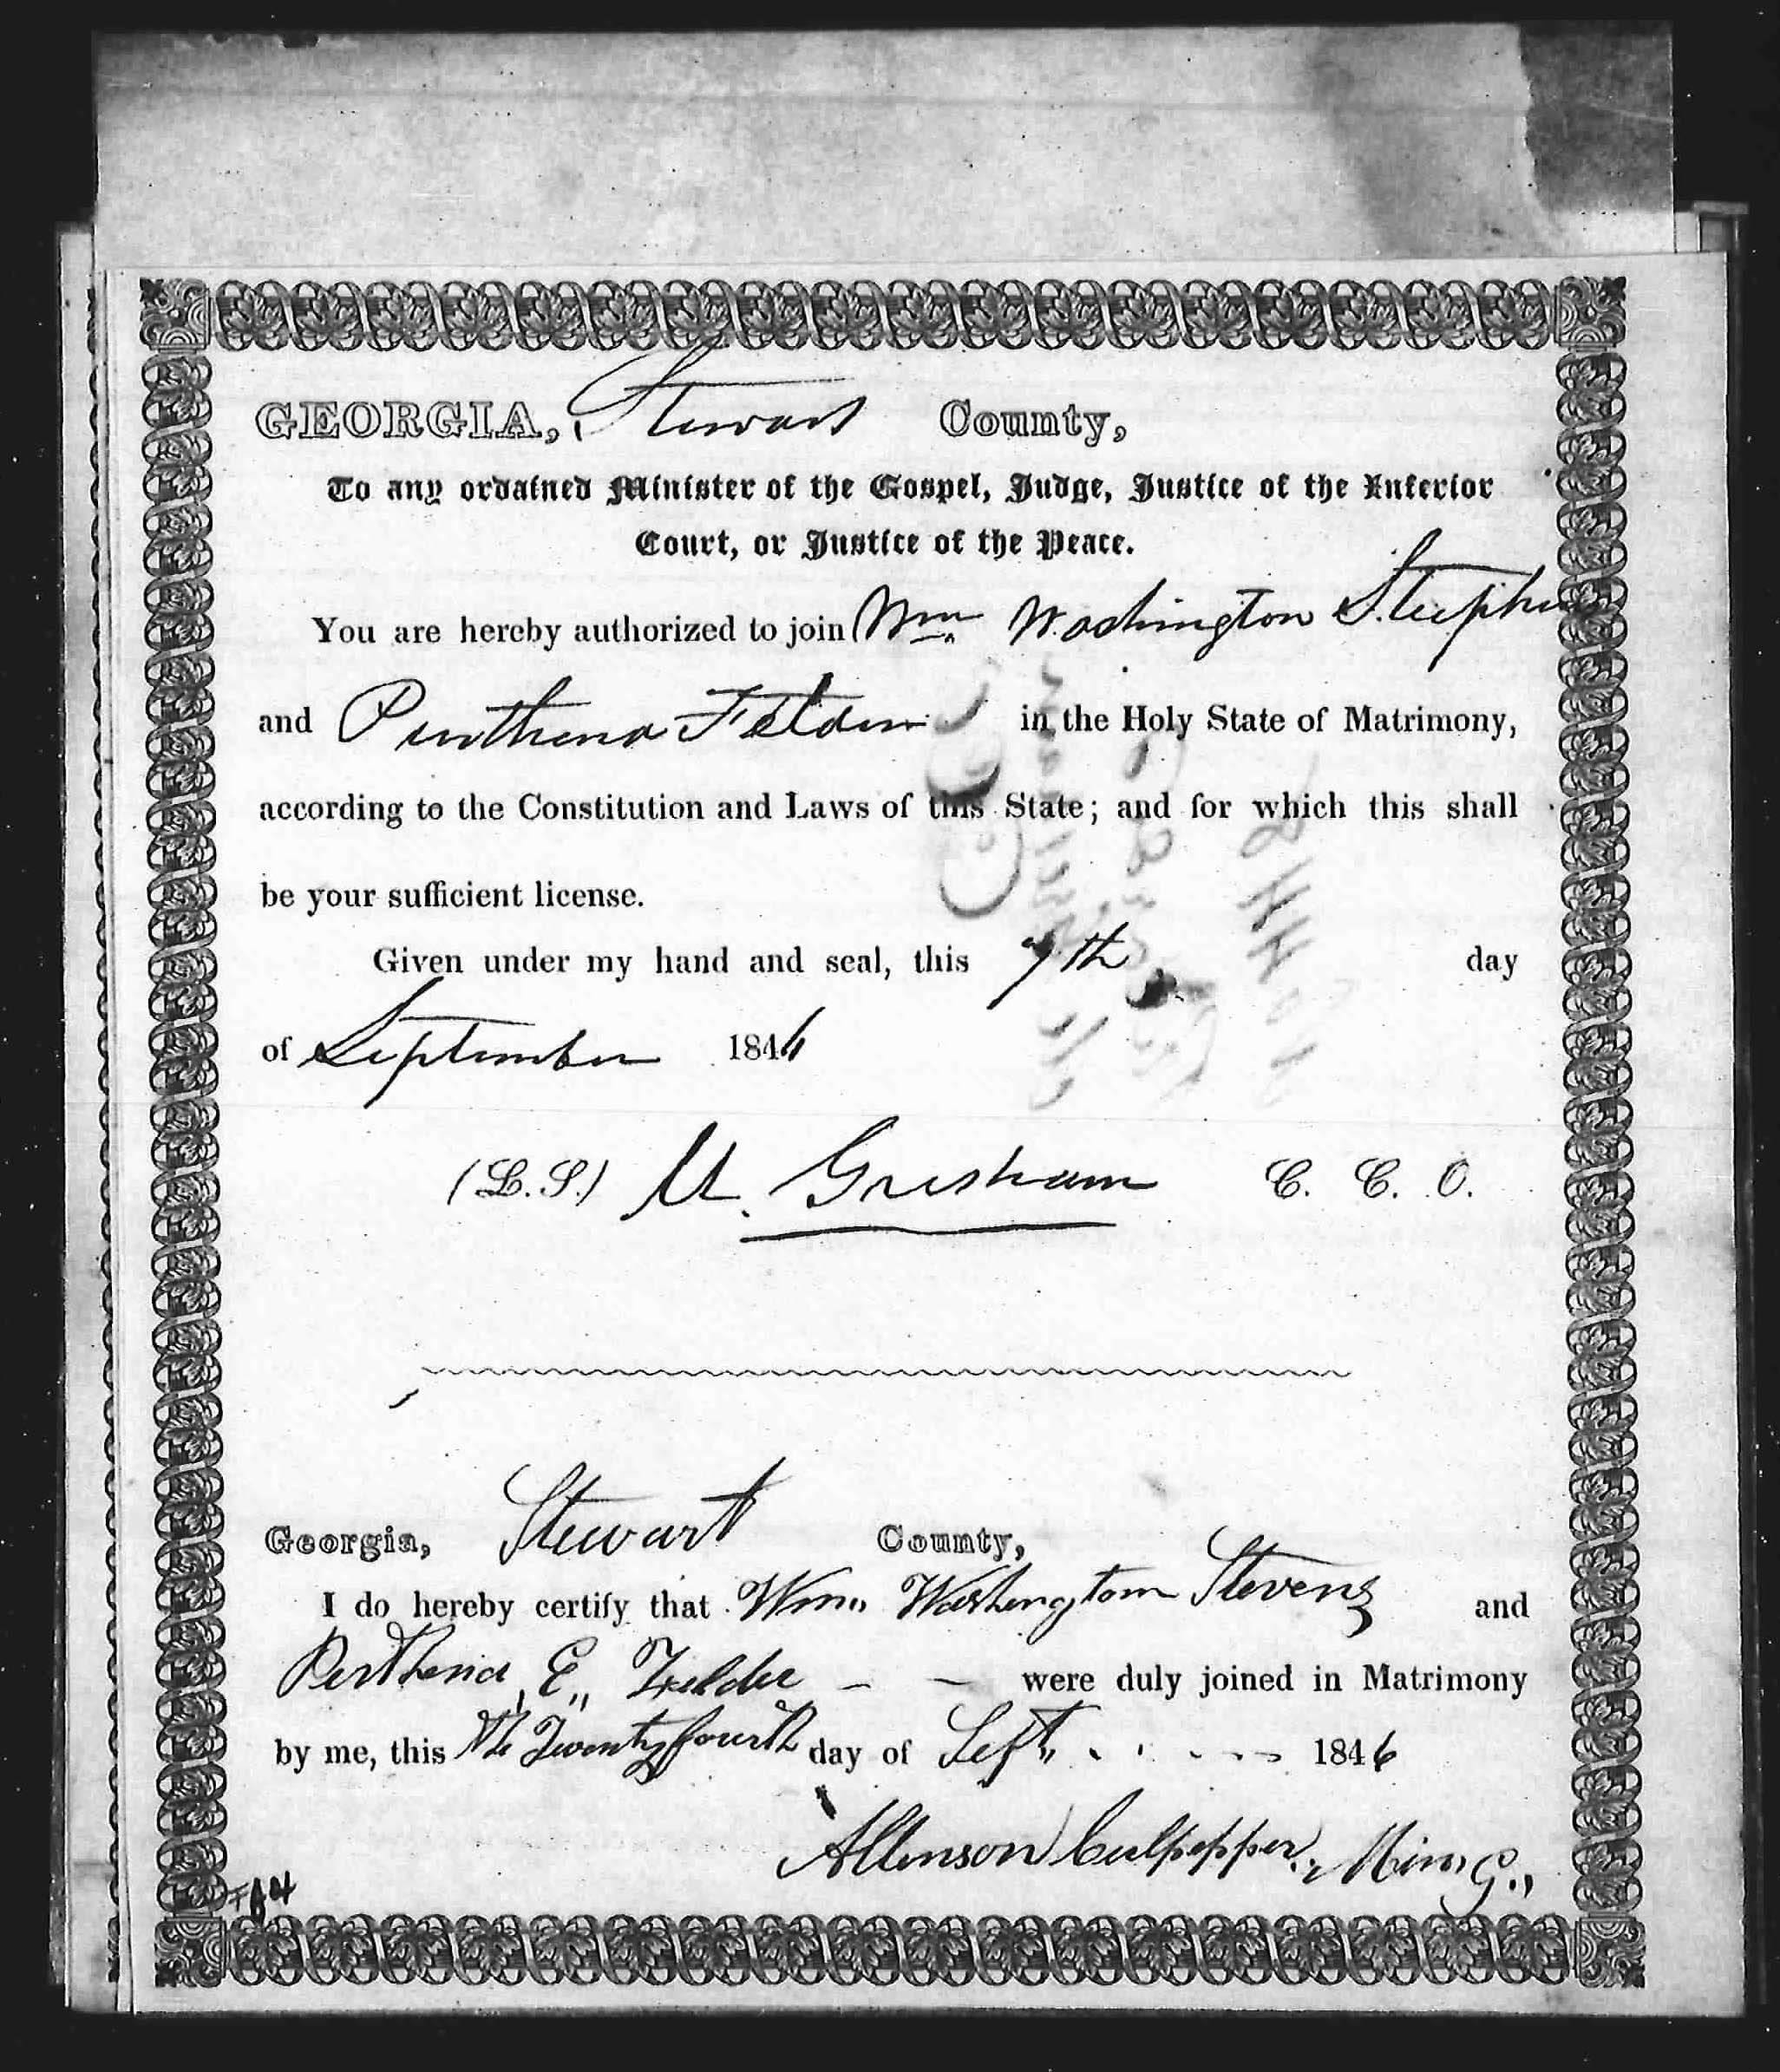 GEORGIA, Stewart County,
To any ordained Minister of the Gospel, Judge, Justice of the Inferior
Court, or Justice of the Peace.
You are hereby authorized to join Wm Washington Stephens
and Penthena Felder in the Holy State of Matrimony,
according to the Constitution and Laws of this State; and for which this shall
be your sufficient license.
Given under my hand and seal, this 7th day
of September 1846
(L.S.) U. Gresham C. C. O.
Georgia, Stewart County,
I do hereby certify that Wm,, Washington Stevens and
Perthenia E,, Felder – – were duly joined in Matrimony
by me, this the Twenty fourth day of Sept,, 1846
Allenson Culpepper, Min, G,,